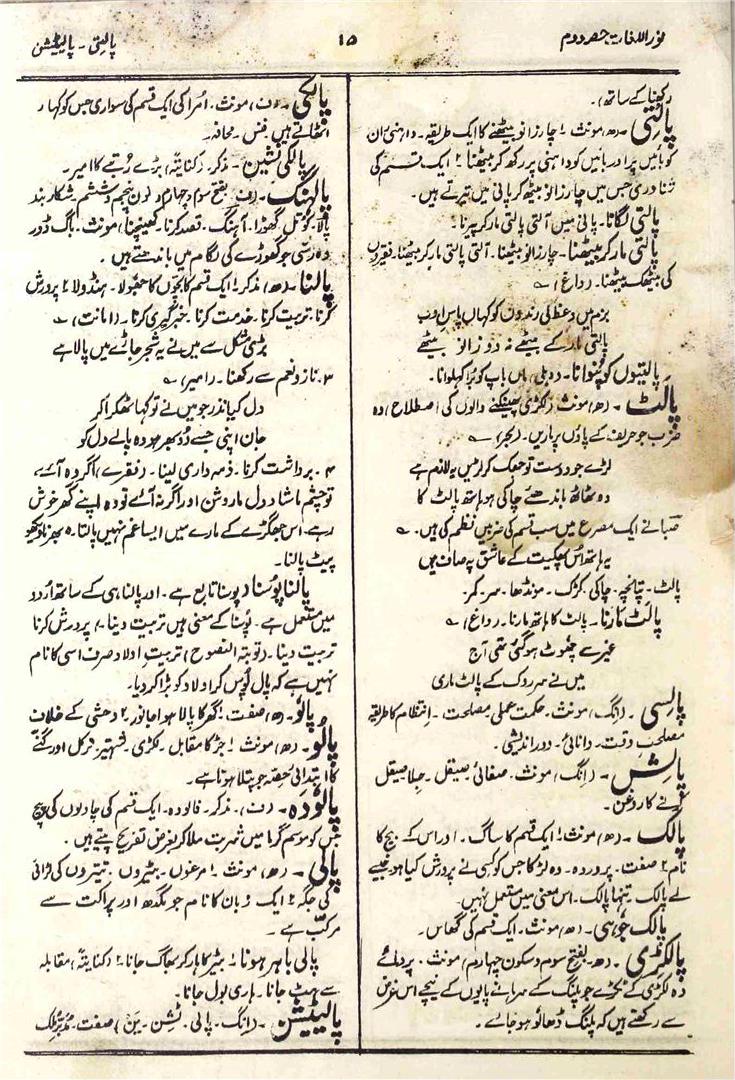 نور اللغات حصہ دوم
۱۵
پالتی - پالیٹیشن
رکھنا کے ساتھ)۔
پالتی۔ (ھ) مونث۔ ۱ چار زانو بیٹھنے کا ایک طریقہ۔ داہنی ران
کو بائیں پر اور بائیں کو داہنی پر رکھ کر بیٹھنا ۲ ایک قسم کی
شناوری جس میں چار زانو بیٹھ کر پانی میں تیرتے ہیں۔
پالتی لگانا۔ پانی میں آلتی پالتی مار کر پیرنا۔
پالتی مار کر بیٹھنا۔ چار زانو بیٹھنا۔ آلتی پالتی مار کر بیٹھنا۔ فقیروں
کی بیٹھک بیٹھنا۔ (داغ) ؎
بزم میں وعظ کی رندوں کو کہاں پاس ادب
پالتی مار کے بیٹھے نہ دو زانو بیٹھے
پالیتوں کو پُنوانا۔ دہلی، ماں باپ کو بُرا کہلوانا۔
پالٹ۔ (ھ) مونث (لکڑی پھینکنے والوں کی اصطلاح) وہ
ضرب جو حریف کے پاؤں پر ماریں۔ (بحر) ؎
لڑے جو دوست تو جھک کر لڑیں یہ لازم ہے
وہ ٹھاٹھ باندھے چاکی ہو ہاتھ پالٹ کا
صبا نے ایک مصرع میں سب قسم کی ضربیں نظم کی ہیں۔ ؎
یہ ہاتھ اس پھکیت کے عاشق پہ صاف ہیں
پالٹ۔ تپانچہ۔ چاکی۔ کڑک۔ مونڈھا۔ سر۔ کمر۔
پالٹ مارنا۔ پالٹ کا ہاتھ مارنا۔ (داغ) ؎
غیر سے چھوٹ ہو گئی تھی آج
میں نے سر روک کے پالٹ ماری
پالسی۔ (انگ) مونث۔ حکمت عملی۔ مصلحت۔ انتظام کا طریقہ
مصلحت وقت۔ دانائی۔ دور اندیشی۔
پالش۔ (انگ) مونث۔ صفائی۔ صیقل۔ جلا۔ صیقل
کرنے کا روغن۔
پالک۔ (ھ) مونث ۱ ایک قسم کا ساگ۔ اور اس کے بیج کا
نام ۲ صفت۔ پروردہ۔ وہ لڑکا جس کو کسی نے پرورش کیا ہو جیسے
لے پالک۔ تنہا پالک۔ اس معنی میں مستعمل نہیں۔
پالک جوہی۔ (ھ) مونث۔ ایک قسم کی گھاس۔
پالکڑی۔ (ھ۔ بفتح سوم و سکون چہارم) مونث۔
وہ لکڑی کے ٹکڑے جو پلنگ کے سرہانے پایوں کے نیچے اس غرض
سے رکھتے ہیں کہ پلنگ ڈھالو ہو جائے۔
پالکی۔ (ف) مونث۔ امرا کی ایک قسم کی سواری جس کو کہار
اٹھاتے ہیں۔ فنس۔ محافہ۔
پالکی نشین۔ مذکر (کنایۃً) بڑے رتبے کا امیر۔
پالہنگ۔ (ف۔ بفتح سوم و چہارم و نون پنجم و ششم۔ شکار بند
پالا۔ کوتل گھوڑا۔ آہنگ۔ قصد کرنا۔ کھینچنا) مونث۔ باگ ڈور
وہ رسی جو گھوڑے کی لگام میں باندھتے ہیں۔
پالنا۔ (ھ) مذکر ۱ ایک قسم کا بچوں کا جھولا۔ ہنڈولا ۲ پرورش
کرنا۔ تربیت کرنا۔ خدمت کرنا۔ خبر گیری کرنا۔ (امانت) ؎
بڑی مشکل سے میں نے یہ شجر جاڑے میں پالا ہے
۳۔ ناز و نعم سے رکھنا۔ (امیر) ؎
دل کیا نذر جو میں نے تو کہا ٹھکرا کر
جان اپنی جسے دوبھر ہو وہ پالے دل کو
۴۔ برداشت کرنا۔ ذمہ داری لینا۔ (فقرے) اگر وہ آئے
تو چشم ما شاد دل ما روشن اور اگر نہ آئے تو وہ اپنے گھر خوش
رہے۔ اس جھگڑے کے مارے میں ایسا غم نہیں پالتا۔ ۵ بھرنا۔ دیکھو
پیٹ پالنا۔
پالنا پوسنا۔ پوسنا تابع ہے۔ اور پالنا ہی کے ساتھ اُردو
میں مستعمل ہے۔ پوسنا کے معنی ہیں تربیت دینا۔) پرورش کرنا
تربیت دینا۔ (توبۃ النصوح) تربیت اولاد صرف اسی کا نام
نہیں ہے کہ پال پوس کر اولاد کو بڑا کر دیا۔
پالو۔ (ھ) صفت ۱ گھر کا پالا ہوا جانور ۲ وحشی کے خلاف
پالو۔ (ھ) مونث ۱ جڑ کا مقابل۔ لکڑی۔ شہتیر۔ نرکل اور گنے
کا ابتدائی حصہ جو پتلا ہوتا ہے۔
پالودہ۔ (ف)۔ مذکر۔ فالودہ۔ ایک قسم کی چاولوں کی پیچ
جس کو موسم گرما میں شربت ملا کر بغرض تفریح پیتے ہیں۔
پالی۔ (ھ) مونث ۱ مرغوں۔ بٹیروں۔ تیتروں کی لڑائی
کی جگہ ۲ ایک زبان کا نام جو مگدھ اور پراکت سے
مرکب ہے۔
پالی باہر ہونا ۱ بٹیر کا ہار کر بھاگ جانا ۲ (کنایۃً) مقابلہ
سے ہٹ جانا۔ ہاری بول جانا۔
پالیٹیشن۔ (انگ۔ پالی۔ ٹشن۔ ین) صفت۔